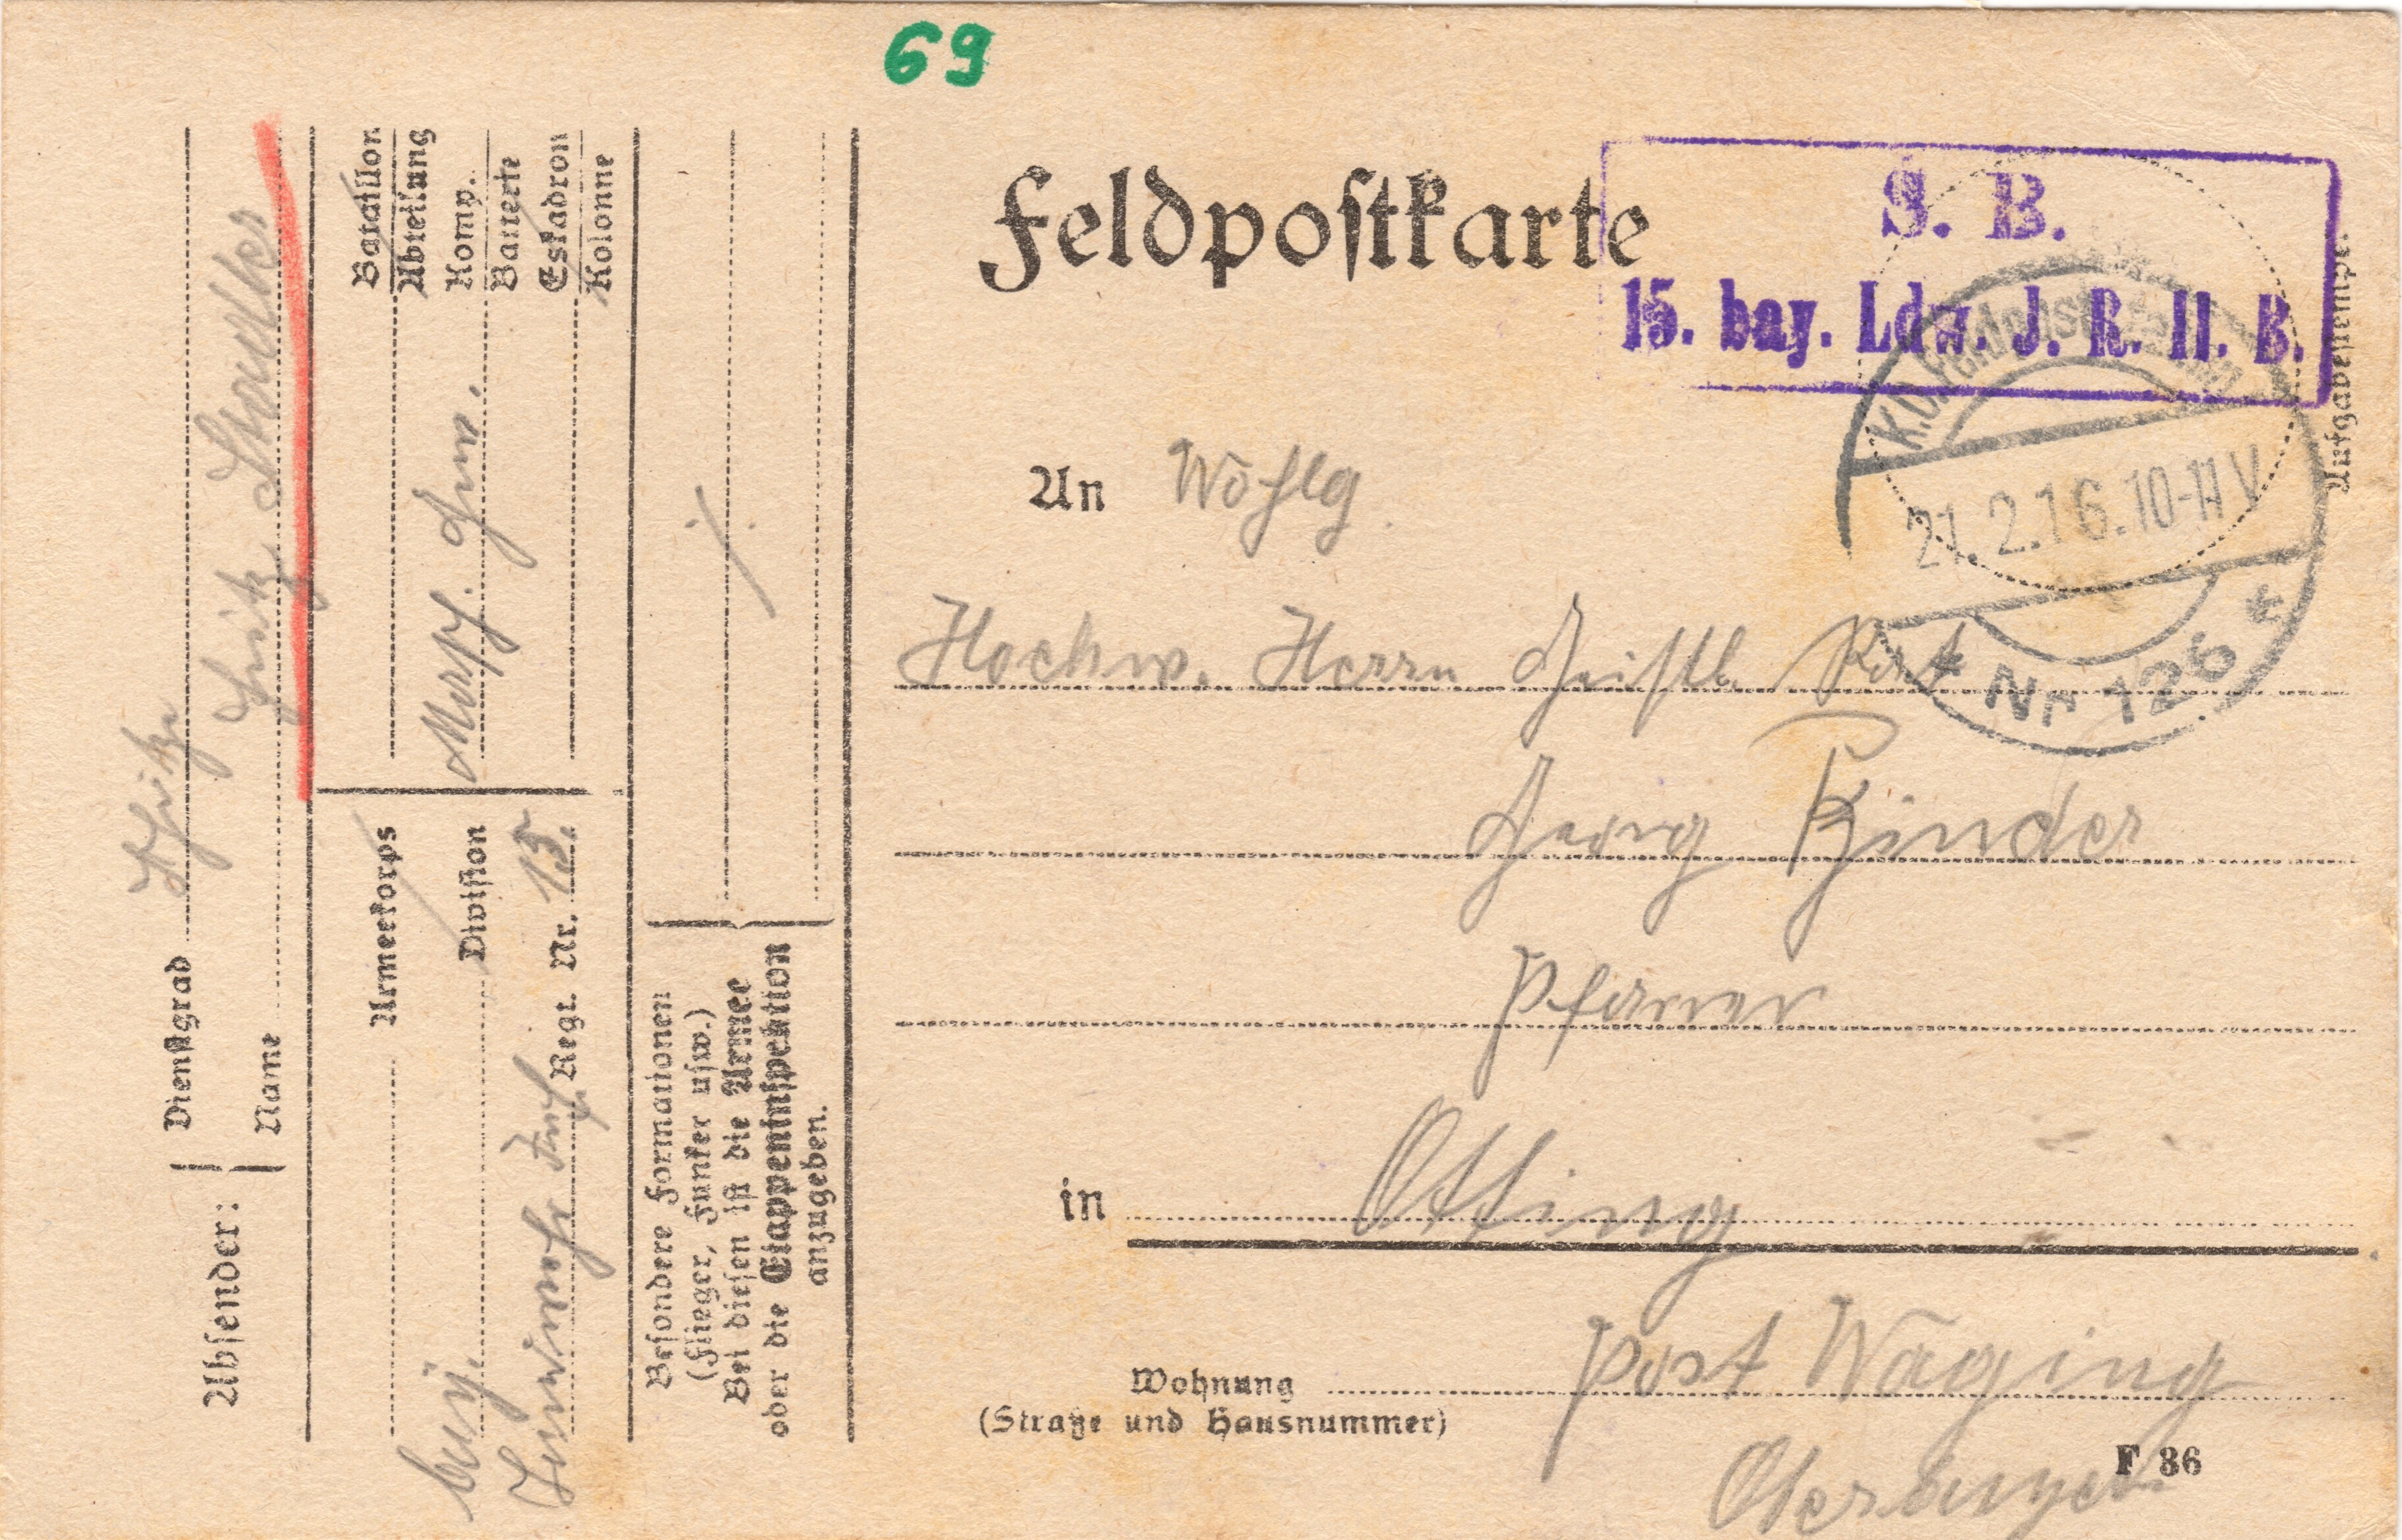 69
Feldpostkarte
S. B.
15. bay. Ldw. J. R. II. B.
Aufgabestempel
K.D. Feldpost
21.2.16.10-11 V
* Nr 126 *
An Wohlg.
Hochw. Herrn Geistl. Rat
Georg Kinder
Pfarrer
in Otting
Wohnung Post Waging
(Straße und Hausnummer)
Oberbayer.
F 36
Absender:
Dienstgrad
Name Fritz Strudler
Armeekorps
Bataillon
Abteilung
Division
Komp.
Batterie
Eskadron
Kolonne
Gew.
bay.
Landwehr Inf. Regt. Nr. 15.
Besondere Formationen
(Flieger, Funker usw.)
Bei diesen ist die Armee
oder die Etappeninspektion
anzugeben.